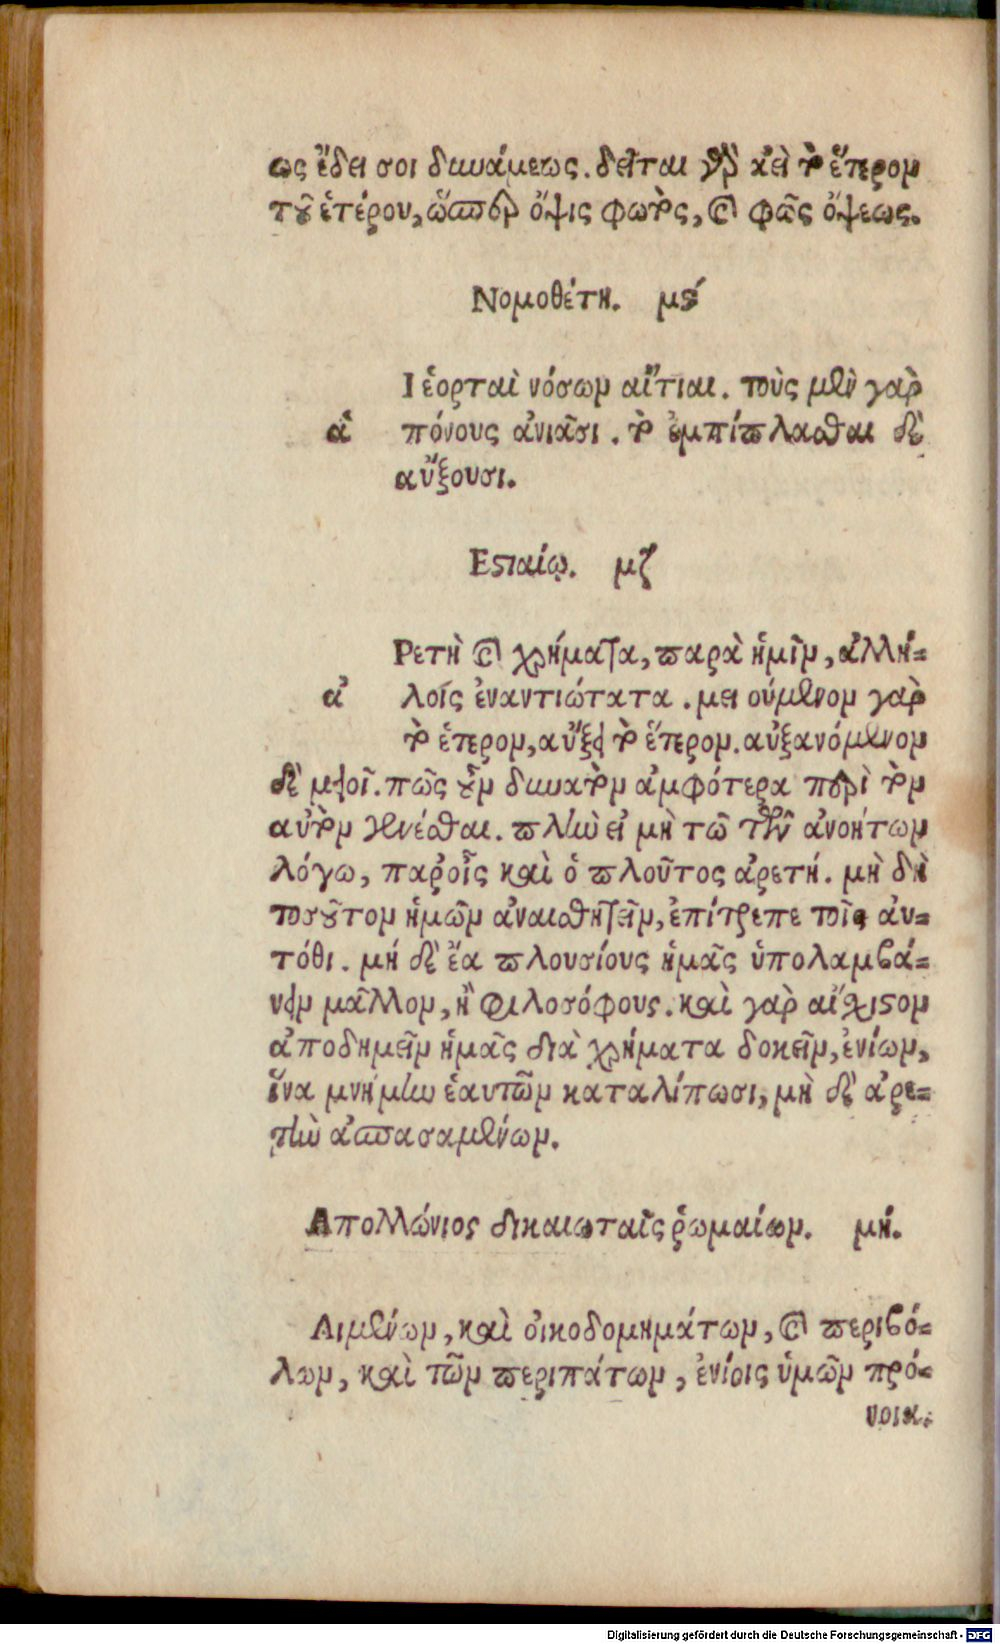 ως ἔδει σοι δυνάμεως. δεῖται γὰρ ἀεὶ τὸ ἕτερον
τοῦ ἑτέρου, ὥσπερ ὄψις φωτὸς, καὶ φῶς ὄψεως.
Νομοθέτῃ. μϛ´
Ι ἑορταὶ νόσων αἴτιαι. τοὺς μὲν γὰρ
ἁ πόνους ἀνιᾶσι. τὸ ἐμπίπλασθαι δὲ
αὔξουσι.
Εστιαίῳ. μζ´
Ρετὴ καὶ χρήματα, παρὰ ἡμῖν, ἀλλή-
ἀ λοίς ἐναντιώτατα. μειούμενον γὰρ
τὸ ἑτερον, αὔξει τὸ ἕτερον. αὐξανόμενον
δὲ μειοῖ. πῶς οὖν δυνατὸν ἀμφότερα περὶ τὸν
αὐτὸν γενέσθαι. πλὴν εἰ μὴ τῶ τῶν ἀνοήτων
λόγω, παρ' οἷς καὶ ὁ πλοῦτος ἀρετή. μὴ δὴ
τοσοῦτον ἡμῶν ἀναισθητεῖν, ἐπίτρεπε τοῖς ἀυ-
τόθι. μή δὲ ἔα πλουσίους ἡμᾶς ὑπολαμβά-
νειν μᾶλλον, ἢ φιλοσόφους. καὶ γὰρ αἴχιστον
ἀποδημεῖν ἡμᾶς διὰ χρήματα δοκεῖν, ἐνίων,
ἵνα μνήμην ἑαυτῶν καταλίπωσι, μὴ δὲ ἀρε-
τὴν ἀσπασαμένων.
Απολλώνιος δικαιωταῖς ῥωμαίων. μή.
Λιμένων, καὶ ὀικοδομημάτων, καὶ περιβό-
λων, καὶ τῶν περιπάτων, ἐνίοις ὑμῶν πρό-
νοια.
Digitalisierung gefördert durch die Deutsche Forschungsgemeinschaft - DFG